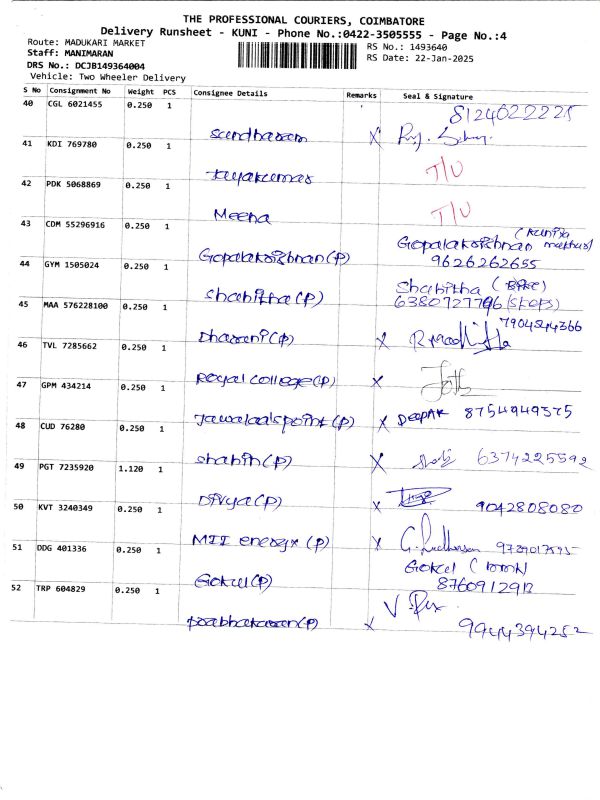 THE PROFESSIONAL COURIERS, COIMBATORE
Delivery Runsheet - KUNI - Phone No.:0422-3505555 - Page No.:4
Route: MADUKARI MARKET
Staff: MANIMARAN
DRS No.: DCJB149364004
Vehicle: Two Wheeler Delivery
RS No.: 1493640
RS Date: 22-Jan-2025
S No Consignment No Weight PCS Consignee Details Remarks Seal & Signature
40 CGL 6021455 0.250 1
8124022225
sundharam X
41 KDI 769780 0.250 1
Jeyakumar T/U
42 PDK 5068869 0.250 1
Meena T/U
43 CDM 55296916 0.250 1
Gopalakrishnan (P) Gopalakrishnan
9626262655
44 GYM 1505024 0.250 1
shabitha (P) Shabitha
6380727796
45 MAA 576228100 0.250 1
7904544366
Dharani (P) X
46 TVL 7285662 0.250 1
Royal college (P) X
47 GPM 434214 0.250 1
(P) X DEEPAK 8754949375
48 CUD 76280 0.250 1
shabin (P) X 6374225592
49 PGT 7235920 1.120 1
Divya (P) X 9042808080
50 KVT 3240349 0.250 1
MII energy (P) X
51 DDG 401336 0.250 1
Gokul (P) Gokul
52 TRP 604829 0.250 1
prabhakaran (P) X 9944394252